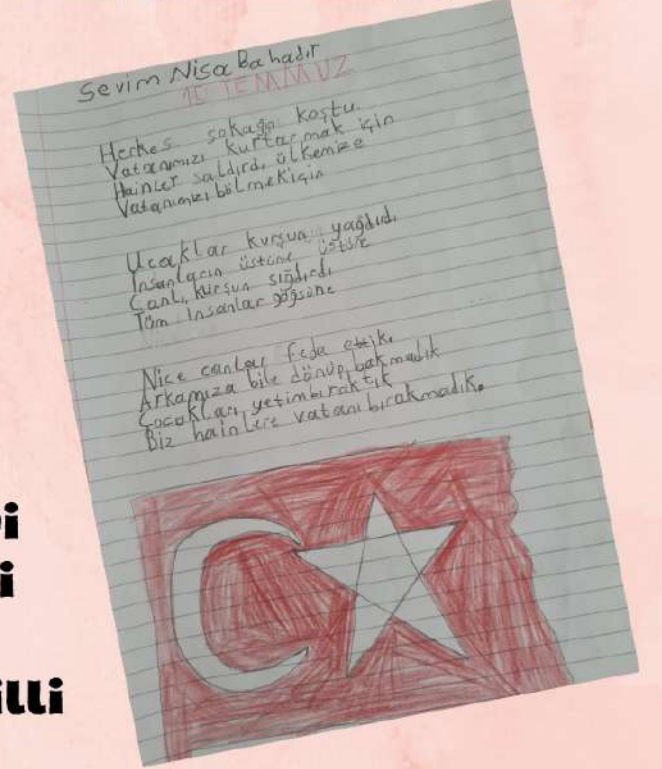 Sevim Nisa Bahadır
15 TEMMUZ
Herkes sokağa koştu.
Vatanımızı kurtarmak için
Hainler saldırdı ülkemize
Vatanımızı bölmekiçin
Uçaklar kurşun yağdırdı
İnsanların üstüne üstüne
Canlı, kurşun sığdırdı
Tüm insanlar göğsüne
Nice canlar feda ettik.
Arkamıza bile dönüp bakmadık
Çocukları yetimbıraktık
Biz hainlere vatanı bırakmadık.
i
i
illi